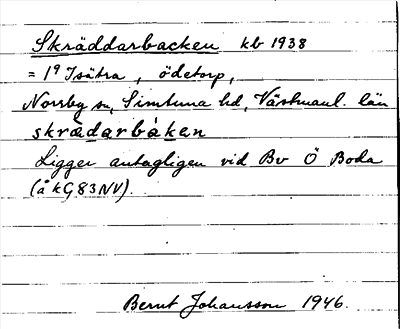 Skräddarbacken kb 1938
= 1⁹ Isätra, ödetorp,
Norrby sn, Simtuna hd, Västmanl. län
skrædarbàkεn
Ligger antagligen vid Bv Ö Boda
(å kG 83 NV).
Bernt Johansson 1946.